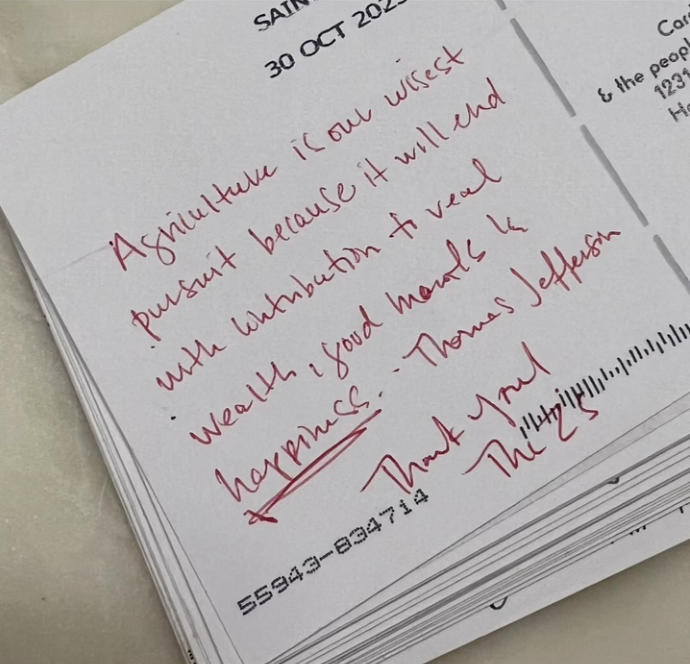 SAIN
30 OCT 202
Agriculture is our wisest
pursuit because it will end
with contribution to real
wealth, good morals &
happiness. - Thomas Jefferson
Thank you!
The
55943-834714
Car
& the peopl
1231
Ho